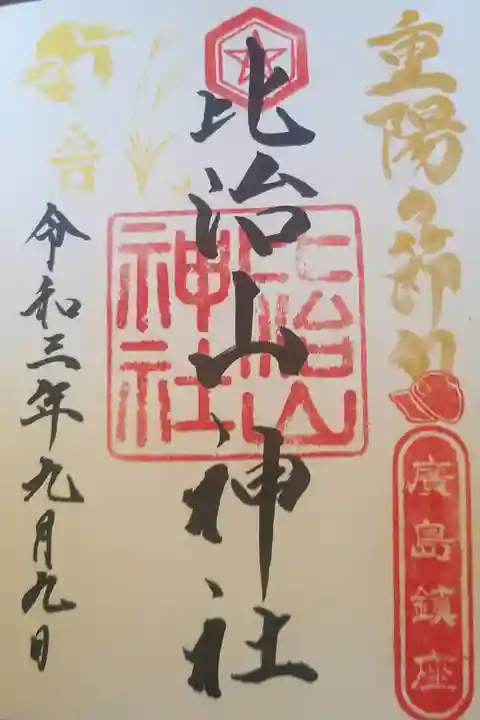 重陽の節句
廣島鎮座
比治山神社
比治山
神社
令和三年九月九日